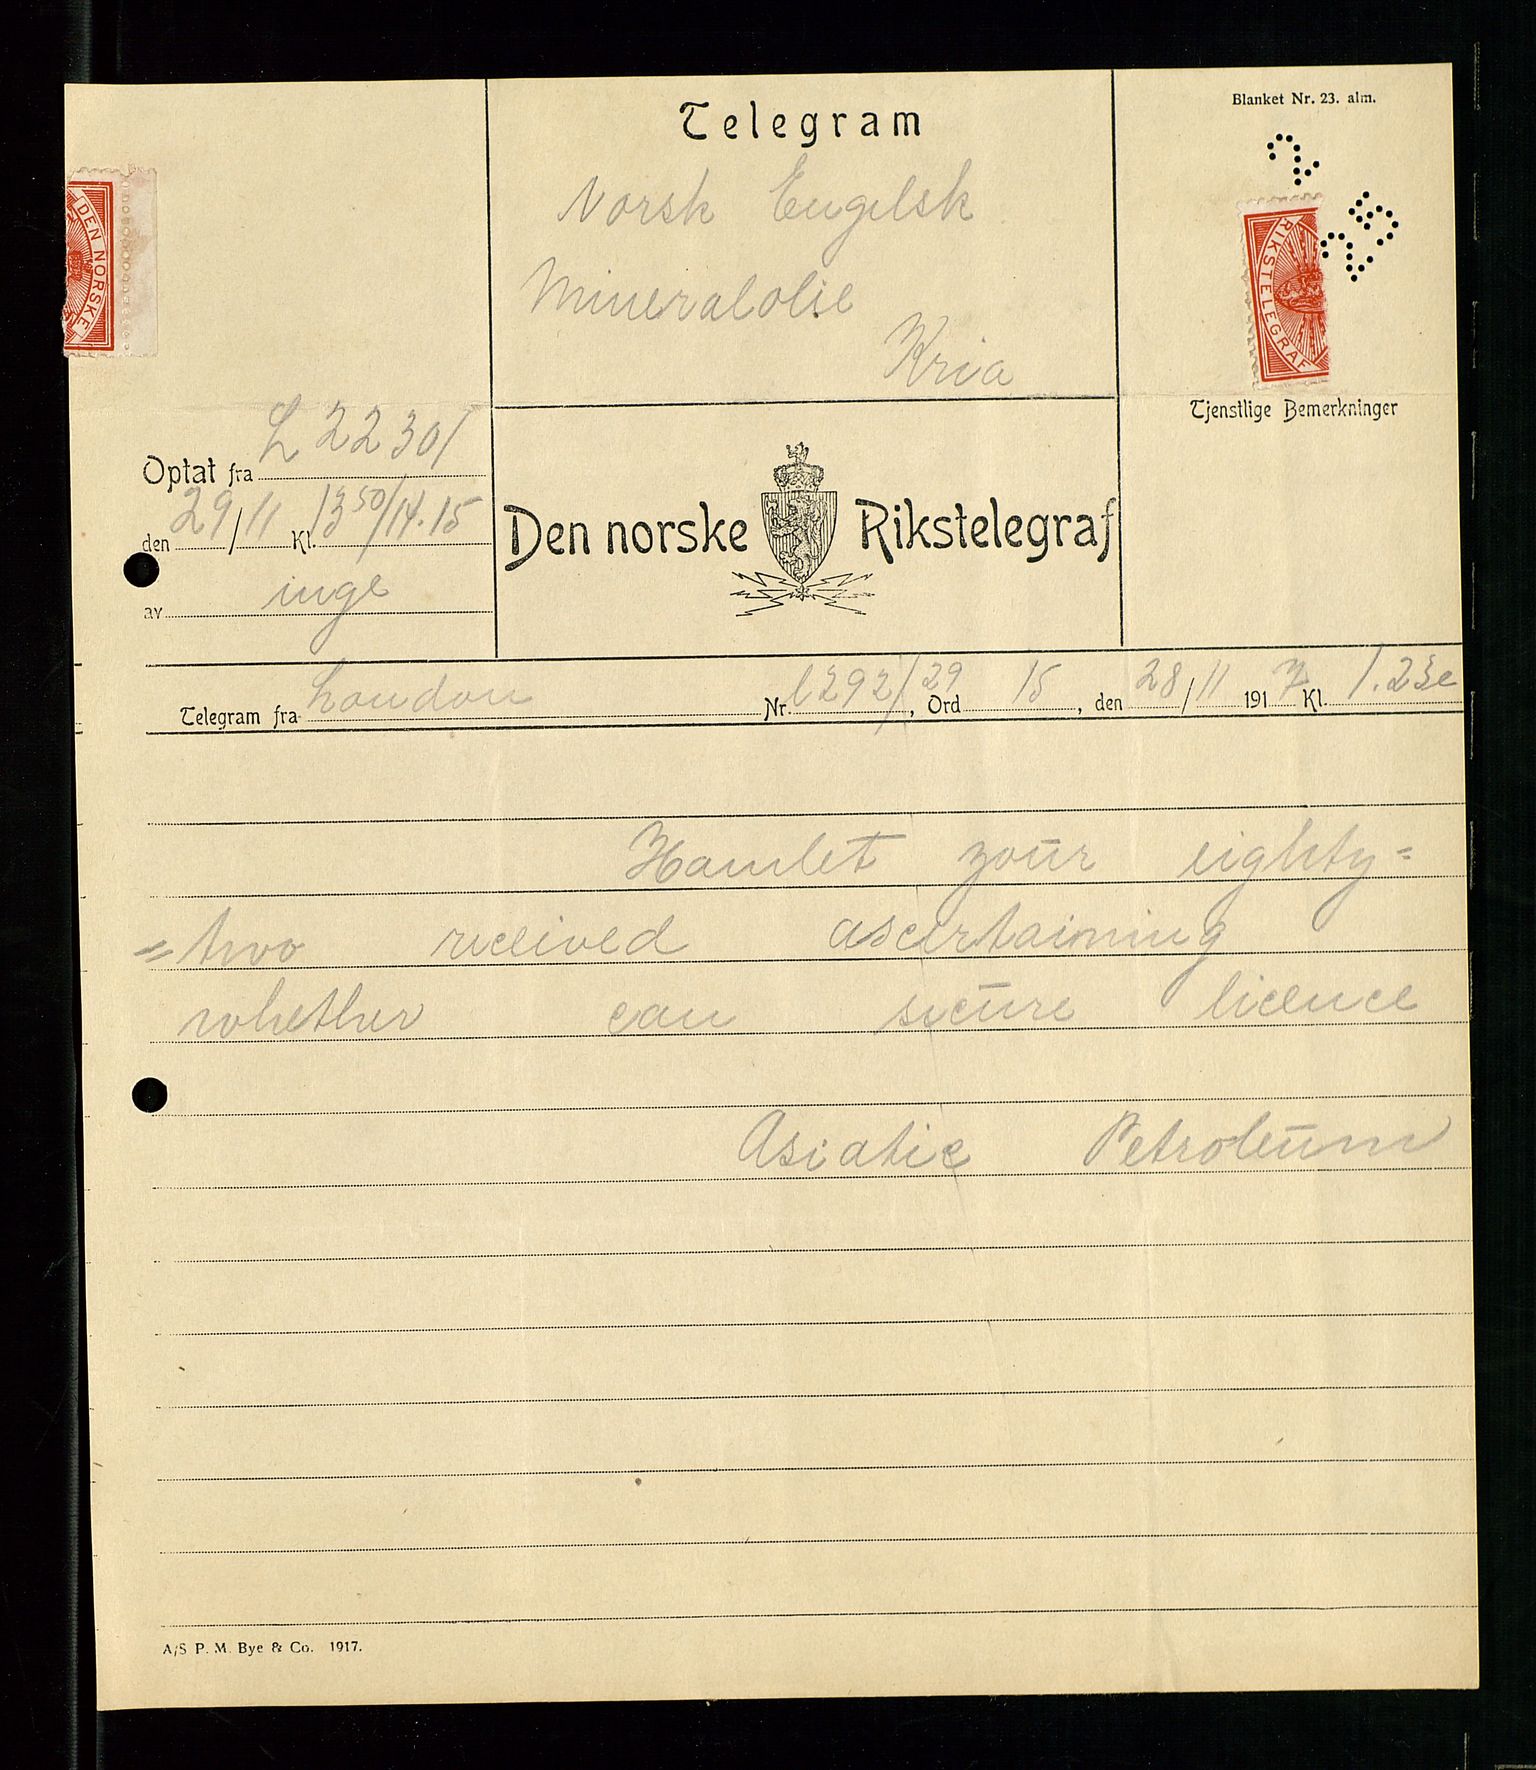 Blanket Nr. 23. alm.
Telegram
Norsk Engelsk
Mineralolie
Kria
DEN NORSKE
RIKSTELEGRAF
2
25
Tjenstlige Bemerkninger
Optat fra L 22301
den 29/11 Kl. 13 50/14.15
av inge
Den norske Rikstelegraf
Telegram fra London Nr. l292/29, Ord 15, den 28/11 1917 Kl. 1.23e
Hamlet your eighty=
=two received ascertaining
whether can secure licence
Asiatic Petroleum
A/S P. M. Bye & Co. 1917.